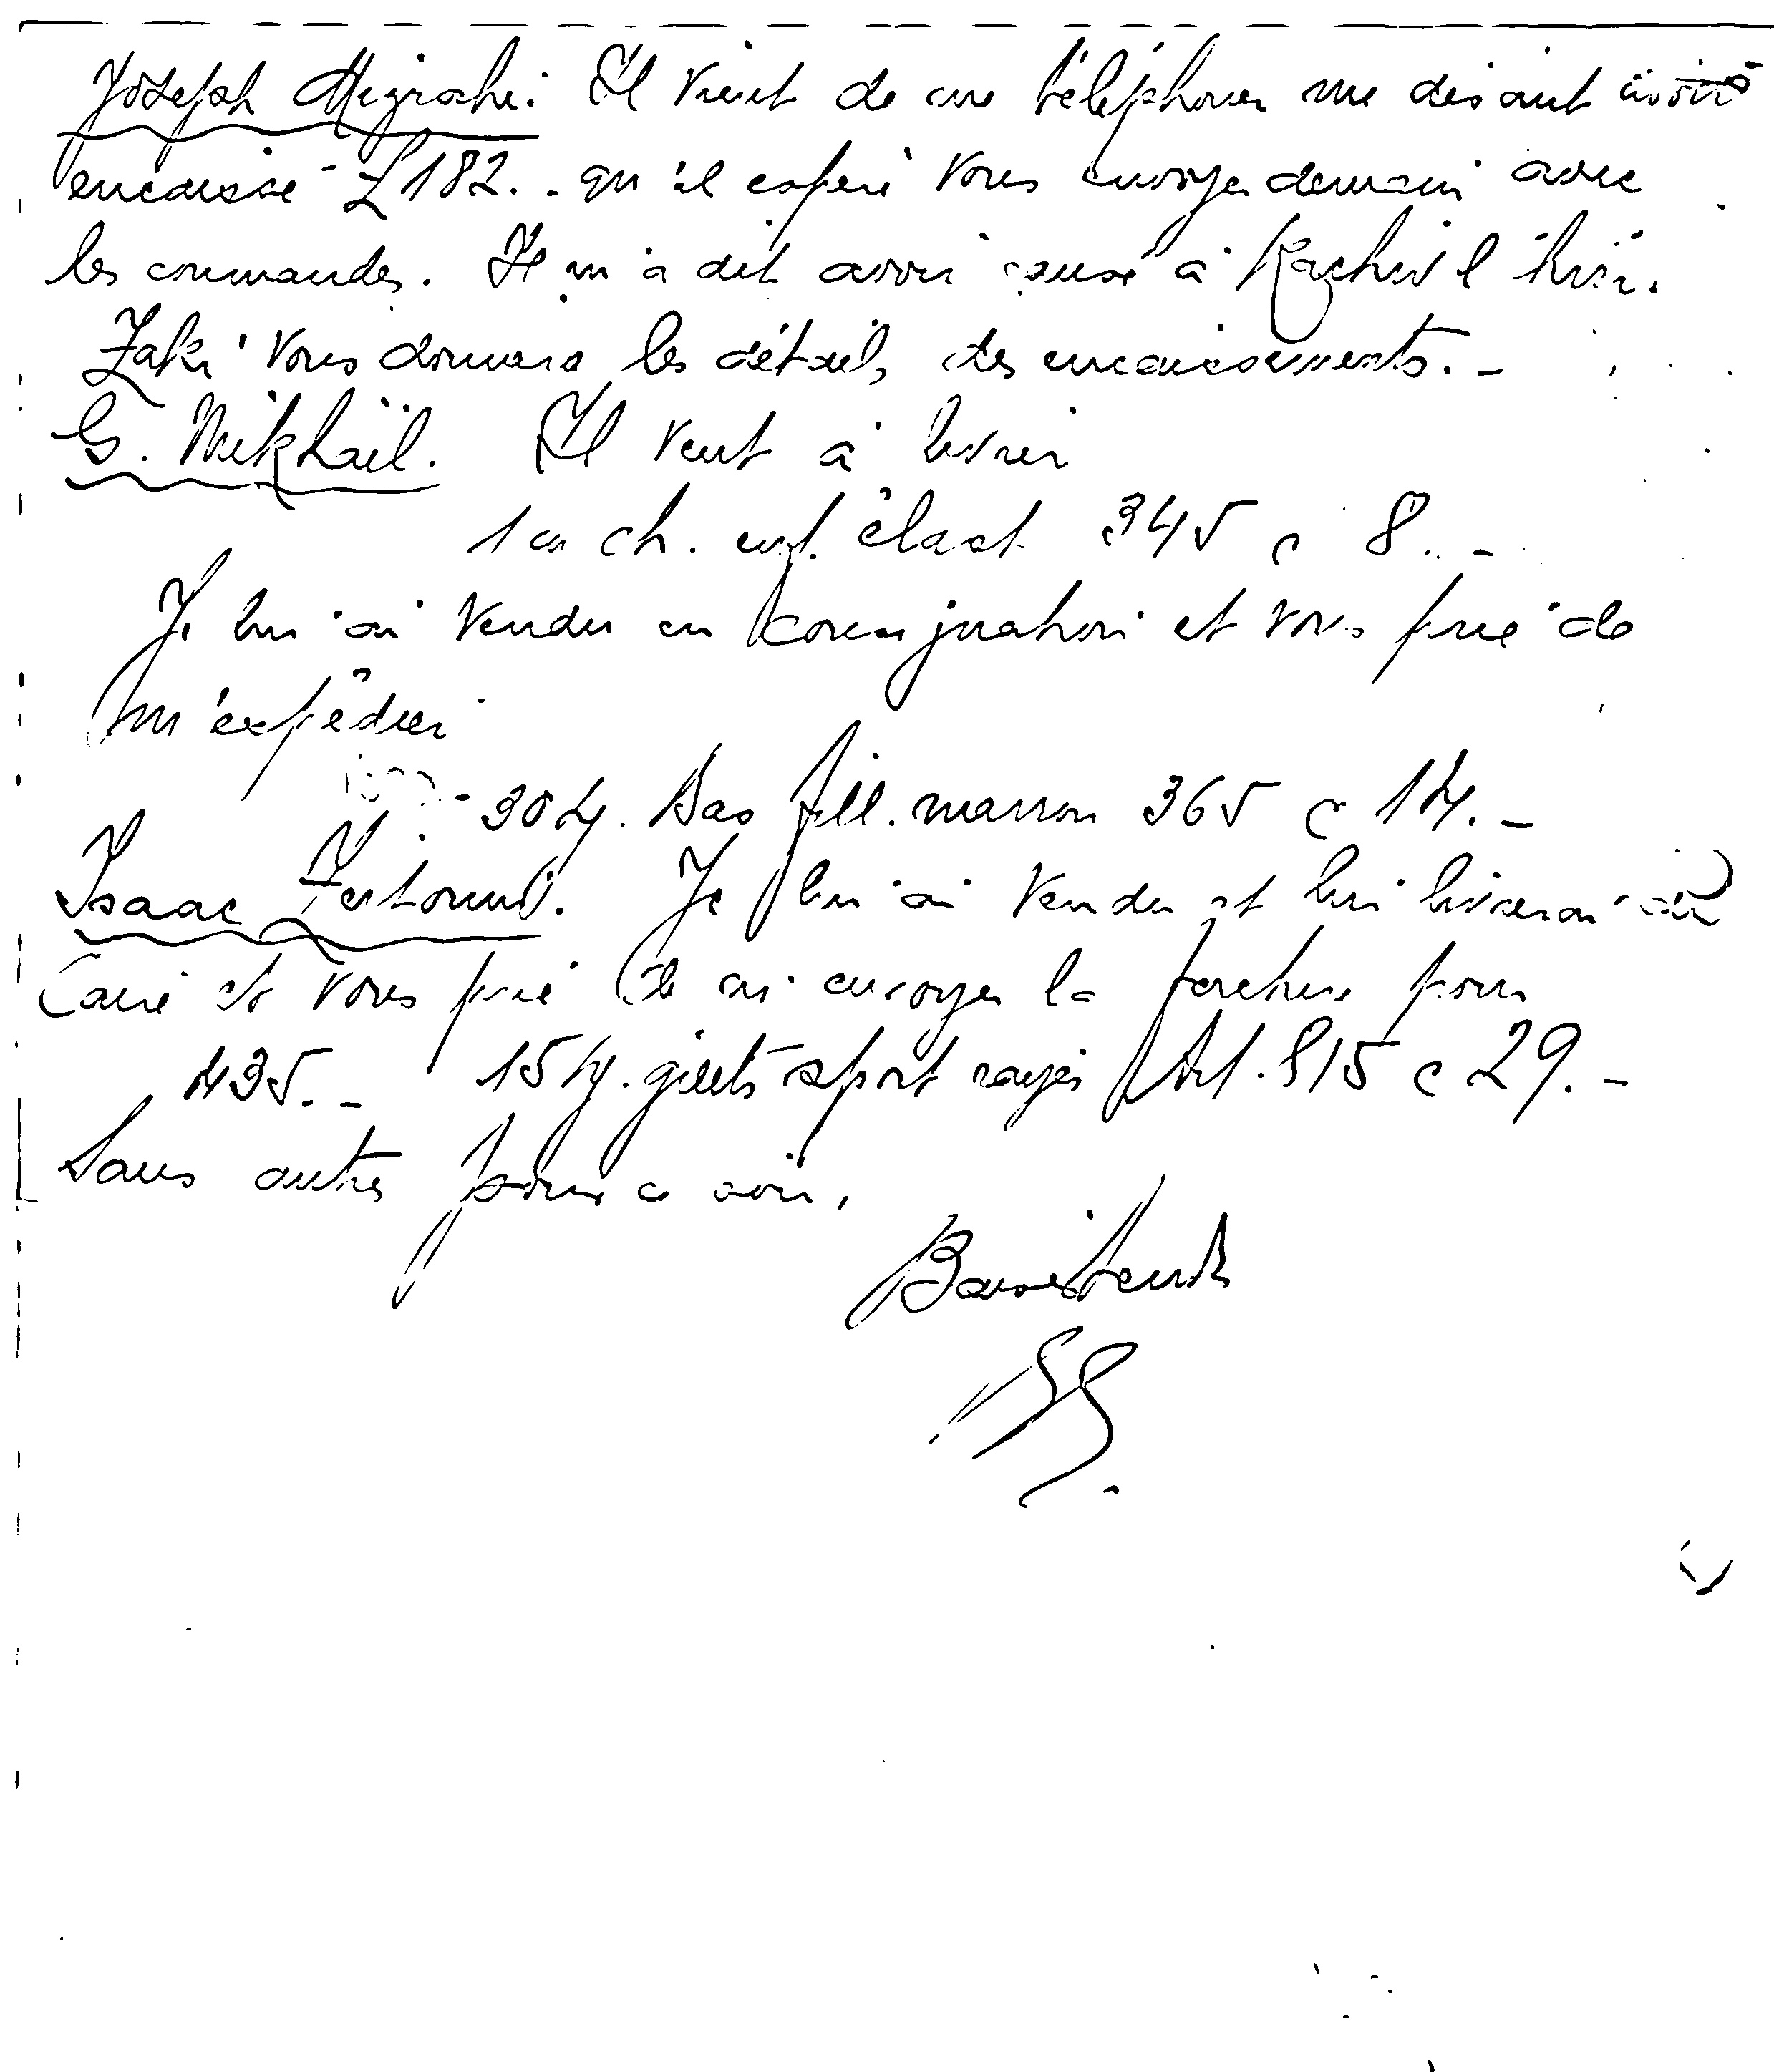 Joseph Mizrahi. Il vient de me téléphoner me disant avoir
encaissé £ 182.- qu'il espère vous envoyer demain avec
les commandes. Il m'a dit avoir causé à
Zaki vous donnera les détails des encaissements.-
G. Mikhaïl. Il veut à livrer
1 ch. enf. élast. 345 c 8.-
Je lui ai vendu en consignation et vous prie de
m'expédier
- 30 Bas fil. marron 365 c 14.-
Isaac Je lui ai vendu et lui livrerai au
Caire et vous prie de m'envoyer la facture pour
435.- 15 gilets sport rayés Art. 815 c 29.-
Sans autre pour ce soir,